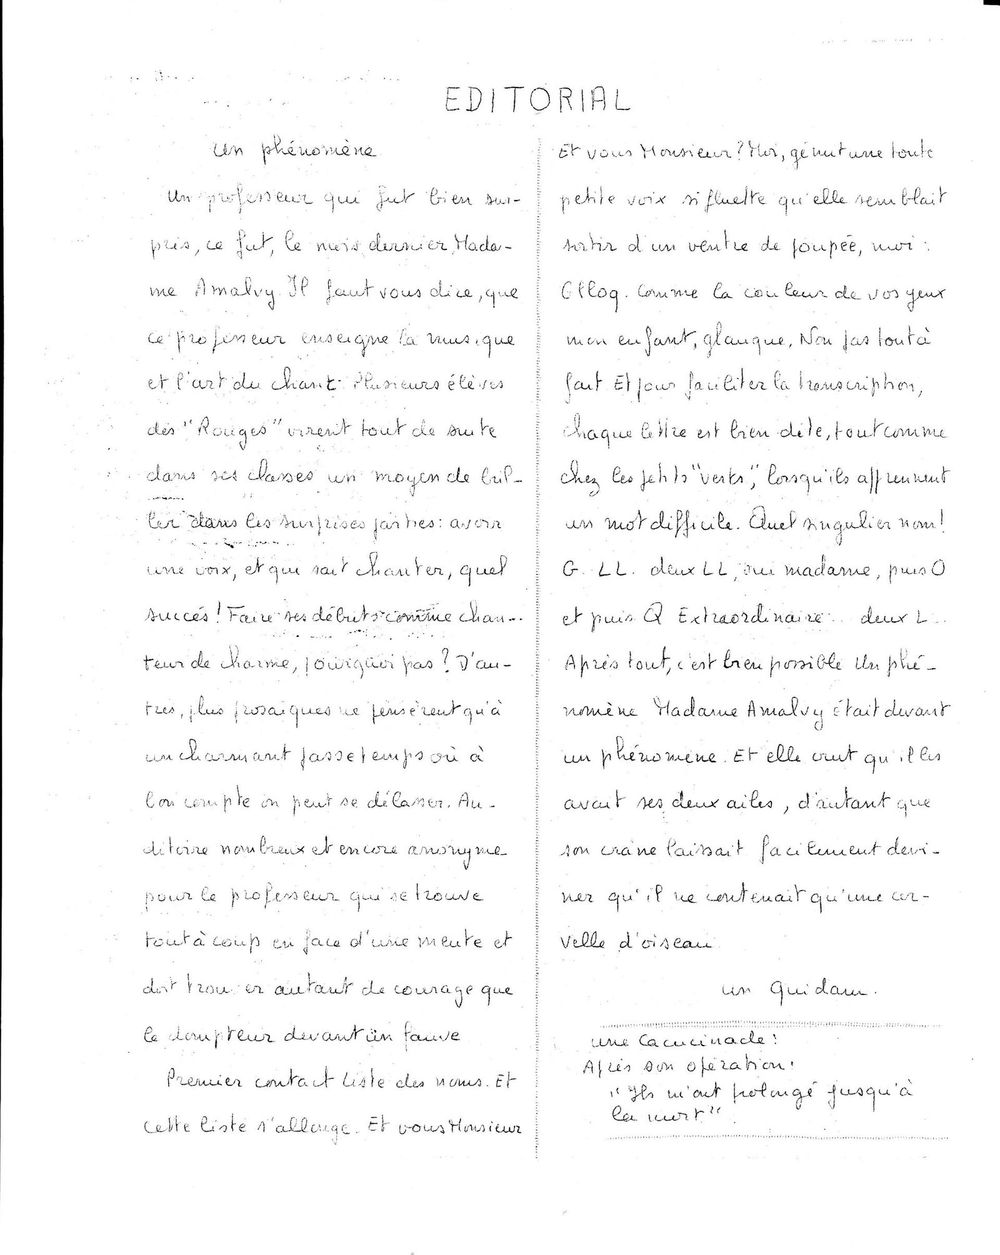 EDITORIAL
Un phénomène
Un professeur qui fut bien sur-
pris, ce fut, le mois dernier, Mada-
me Amalvy. Il faut vous dire, que
ce professeur enseigne la musique
et l'art du chant. Plusieurs élèves
des "Rouges" virent tout de suite
dans ses classes un moyen de bril-
ler dans les surprises parties: avoir
une voix, et qui sait chanter, quel
succés! Faire ses débuts comme chan-
teur de charme, pourquoi pas? D'au-
tres, plus prosaïques ne pensèrent qu'à
un charmant passe temps où à
bon compte on peut se délasser. Au-
ditoire nombreux et encore anonyme
pour le professeur qui se trouve
tout à coup en face d'une meute et
doit trouver autant de courage que
le dompteur devant un fauve
Premier contact liste des noms. Et
cette liste s'allonge. Et vous Monsieur
Et vous Monsieur? Moi, gémit une toute
petite voix si fluette qu'elle semblait
sortir d'un ventre de poupée, moi:
Glloq. Comme la couleur de vos yeux
mon enfant, glauque. Non pas tout à
fait Et pour faciliter la transcription,
chaque lettre est bien dite, tout comme
chez les petits "verts", lorsqu'ils apprennent
un mot difficile. Quel singulier nom!
G. LL. deux LL, oui madame, puis O
et puis Q Extraordinaire.. deux L..
Après tout, c'est bien possible Un phé-
nomène Madame Amalvy était devant
un phénomène. Et elle crut qu'il les
avait ses deux ailes, d'autant que
son crane laissait facilement devi-
ner qu'il ne contenait qu'une cer-
velle d'oiseau
un Quidam.
une Cacucinade:
Après son opération:
"Ils m'ont prolongé jusqu'à
la mort".